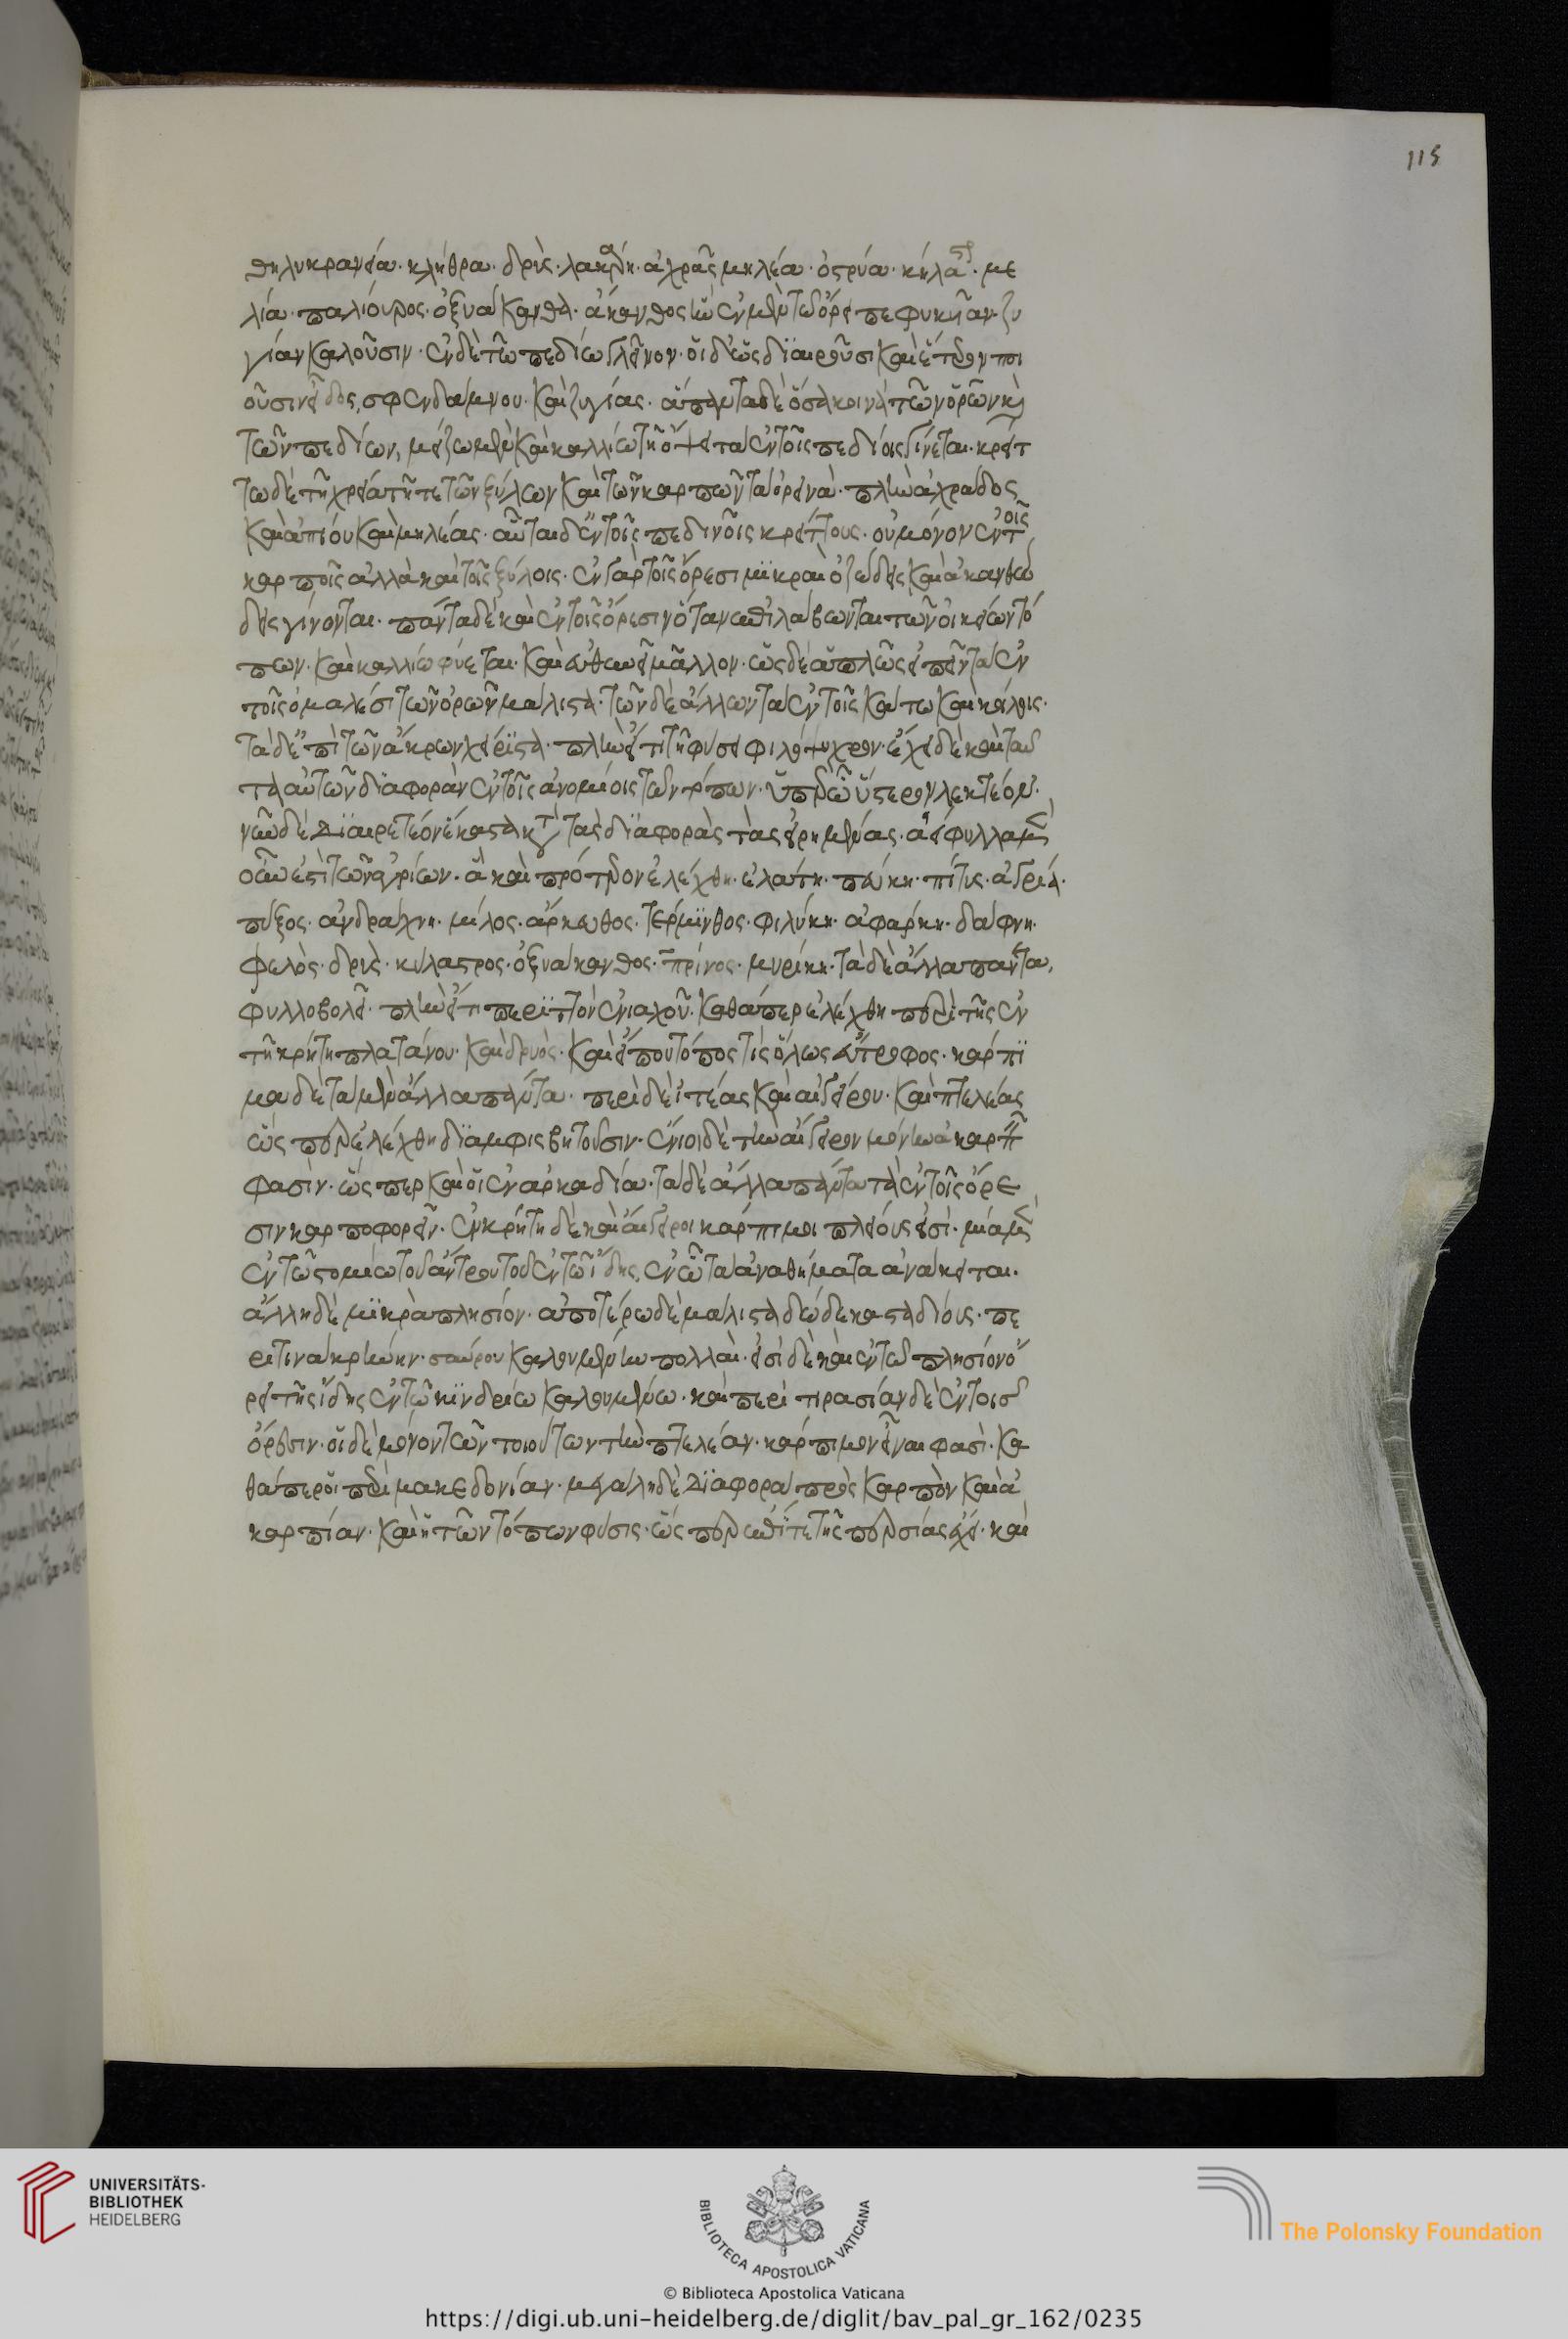 θηλυκρανεία· κλήθρα· δρῦς· λακάρη· ἀχρὰς μηλέα· ὀστρύα· κήλαστρον· με
λία· παλίουρος· ὀξυάκανθα· ἄκανθος ἣν ἐν μὲν τῶ ὄρει πεφυκυῖαν ζυ
γίαν καλοῦσιν· ἐν δὲ τῶ πεδίω γλεῖνον· οἱ δ' ὣς διαιροῦσι καὶ ἕτερον ποι
οῦσιν εἶδος, σφενδάμνου· καὶ ζυγίας· ἅπαντα δὲ ὅσα κοινὰ τῶν ὀρῶν καὶ
τῶν πεδίων, μείζω μὲν καὶ καλλίω τῆ ὄψει τὰ ἐν τοῖς πεδίοις γίνεται· κρείτ
τω δὲ τῆ χρεία τῆ τε τῶν ξύλων καὶ τῶν καρπῶν τὰ ὀρεινὰ· πλὴν ἀχράδος
καὶ ἀπίου καὶ μηλέας· αὗται δ' ἐν τοῖς πεδινοῖς κρείττους· οὐ μόνον ἐν τοῖς
καρποῖς ἀλλὰ καὶ τοῖς ξύλοις· ἐν γὰρ τοῖς ὄρεσι μικραὶ ὀζώδεις καὶ ἀκανθώ
δεις γίνονται· πάντα δὲ καὶ ἐν τοῖς ὄρεσιν ὅταν ἐπιλάβωνται τῶν οἰκείων τό
πων· καὶ καλλίω φύεται· καὶ εὐθενεῖ μᾶλλον· ὡς δὲ ἁπλῶς εἰπεῖν τὰ ἐν
τοῖς ὁμαλέσι τῶν ὀρῶν μάλιστα· τῶν δὲ ἄλλων τὰ ἐν τοῖς κάτω καὶ κοίλοις·
τὰ δ' ἐπὶ τῶν ἄκρων χείριστα· πλὴν εἴ τι τῆ φύσει φιλόψυχρον· ἔχει δὲ καὶ ταῦ
τα αὐτῶν διαφορὰν ἐν τοῖς ἀνομοίοις τῶν τόπων· ὑπὲρ ὧν ὕστερον λεκτέον·
νῦν δὲ διαιρετέον ἕκαστα κατὰ τὰς διαφορὰς τὰς εἰρημένας· ἀείφυλλα μὲν
οὖν ἐστὶ τῶν ἀγρίων· ἃ καὶ πρότερον ἐλέχθη· ἐλάτη· πεύκη· πίτυς· ἀγρία·
πύξος· ἀνδράχνη· μίλος· ἄρκευθος· τέρμινθος· φιλύκη· ἀφάρκη· δάφνη·
φελὸς· δρῦς· κύλαστρος· ὀξυάκανθος· πρίνος· μυρίκη· τὰ δὲ ἄλλα πάντα,
φυλλοβολεῖ· πλὴν εἴ τι περιττὸν ἐνιαχοῦ· καθάπερ ἐλέχθη περὶ τῆς ἐν
τῆ κρήτη πλατάνου· καὶ δρυὸς· καὶ εἴ που τόπος τὶς ὅλως εὔτροφος· κάρπι
μα δὲ τὰ μὲν ἄλλα πάντα· περὶ δὲ ἰτέας καὶ αἰγείρου· καὶ πτελέας
ὥς περ ἐλέχθη διαμφισβητοῦσιν· ἔνιοι δὲ τὴν αἴγειρον μόνην ἀκαρπεῖν
φασὶν· ὥς περ καὶ οἱ ἐν ἀρκαδία· τὰ δὲ ἄλλα πάντα τὰ ἐν τοῖς ὄρε
σιν καρποφορεῖν· ἐν κρήτη δὲ καὶ αἴγειροι κάρπιμοι πλείους εἰσὶ· μία μὲν
ἐν τῶ στομίω τοῦ ἄντρου τοῦ ἐν τῶ ἴδης, ἐν ὧ τὰ ἀναθήματα ἀνάκειται·
ἄλλη δὲ μικρὰ πλησίον· ἀποτέρω δὲ μάλιστα δώδεκα σταδίους· πε
ρί τινα κρήνην· σαύρου καλουμένην πολλαὶ· εἰσὶ δὲ καὶ ἐν τῶ πλησίον ὄ
ρει τῆς ἴδης ἐν τῶ κινδρίω καλουμένω· καὶ περὶ πρασίαν δὲ ἐν τοῖς
ὄρεσιν· οἱ δὲ μόνον τῶν τοιούτων τὴν πτελέαν· κάρπιμον εἶναι φασὶ· κα
θάπερ οἱ περὶ μακεδονίαν· μεγάλη δὲ διαφορὰ πρὸς καρπὸν καὶ ἀ
καρπίαν· καὶ ἡ τῶν τόπων φύσις· ὥς περ ἐπί τε τῆς περσέας ἔχει· καὶ
115
UNIVERSITÄTS-
BIBLIOTHEK
HEIDELBERG
BIBLIOTECA APOSTOLICA VATICANA
The Polonsky Foundation
© Biblioteca Apostolica Vaticana
https://digi.ub.uni-heidelberg.de/diglit/bav_pal_gr_162/0235